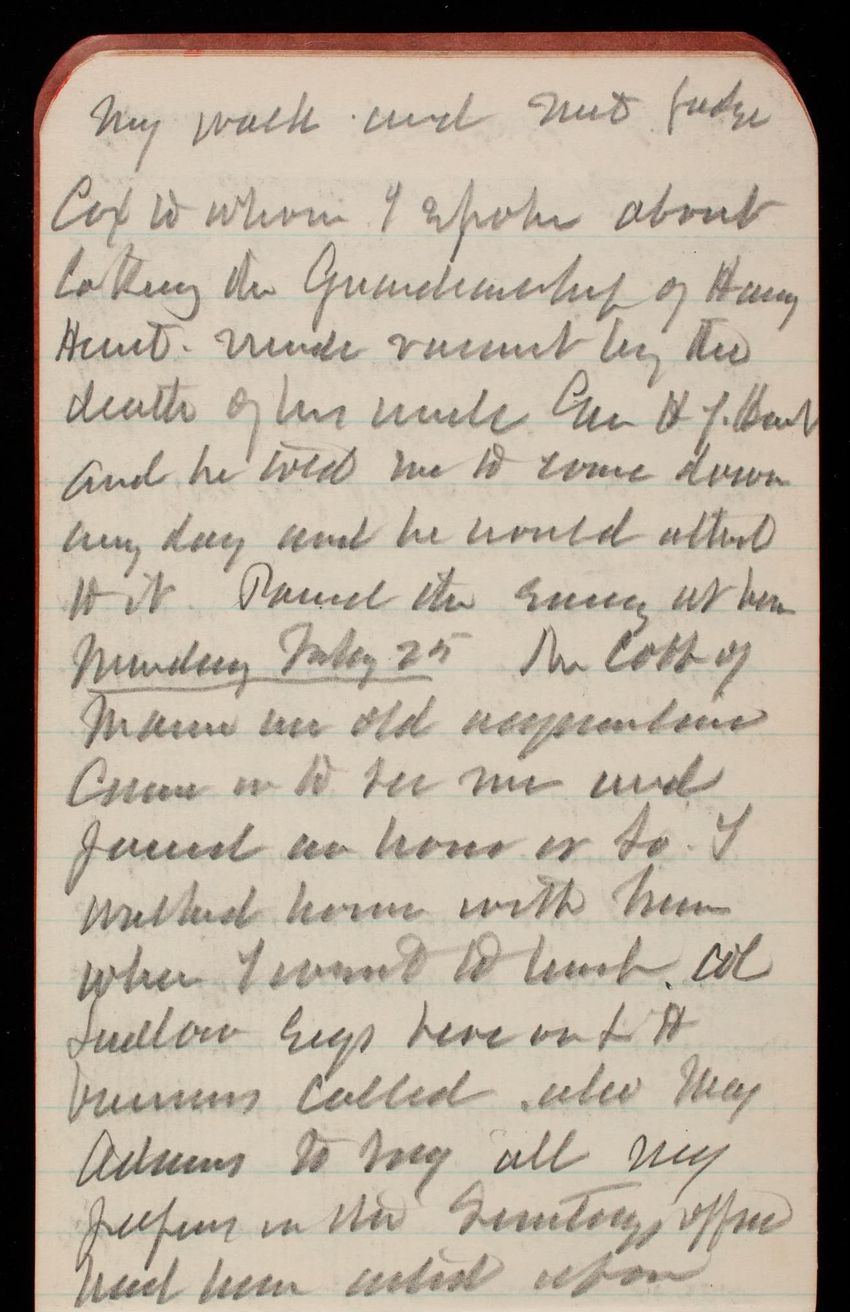 my walk and met Judge
Cox to whom I spoke about
letting the Guardianship of Harry
Hunt. made vacant by the
death of his uncle Gen H J. Hunt
and he told me to come down
any day and he would attend
to it. Passed the Evening at home
Monday Feby 25 Mr Cobb of
Maine an old acquaintance
Came in to see me and
passed an hour or so. I
walked home with him
when I went to lunch. Col
Ludlow Engs here and H
called. also Maj
Adams to say all my
papers in the Secretarys office
had been acted upon